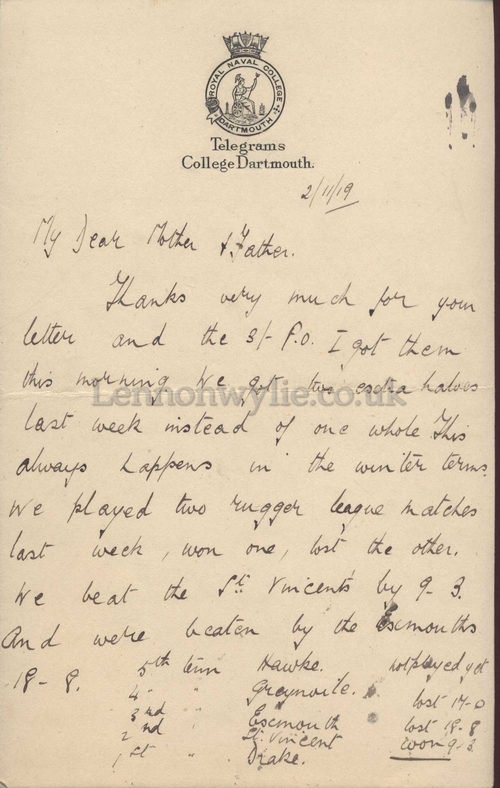 ROYAL NAVAL COLLEGE
DARTMOUTH
Telegrams
College Dartmouth.
2/11/19
My Dear Mother & Father.
Thanks very much for your
letter and the 3/- P.O. I got them
this morning We got two extra halves
Lennonwylie.co.uk
last week instead of one whole This
always happens in the winter terms.
We played two rugger league matches
last week, won one, lost the other.
We beat the St. Vincents by 9-3.
And were beaten by the Exmouths
18-8.
5th term Hawke. not played yet
4 " Grenville. lost 17-0
3rd " Exmouth lost 18-8
2nd " St. Vincent won 9-3
1st " Drake.